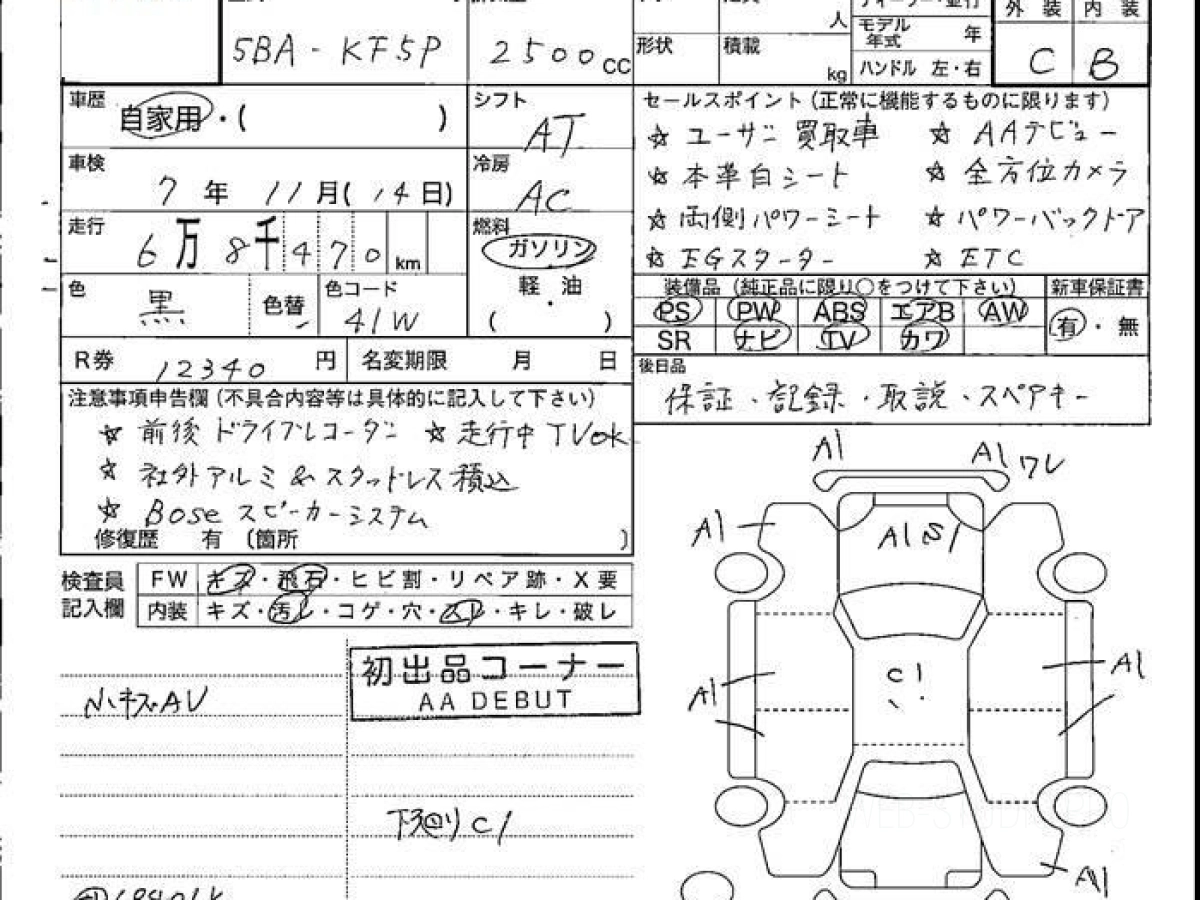 外装 内装
5BA-KF5P 2500cc
人
形状 積載 kg
モデル年式 年
ハンドル 左・右
C B
車歴 自家用・( )
シフト AT
セールスポイント(正常に機能するものに限ります)
☆ ユーザー買取車 ☆ AAデビュー
車検 7年 11月(14日)
冷房 AC
☆ 本革白シート ☆ 全方位カメラ
走行 6万8千470km
燃料 ガソリン
軽・油
( )
☆ 両側パワーシート ☆ パワーバックドア
☆ EGスターター ☆ ETC
色 黒 色替 色コード 41W
装備品(純正品に限り○をつけて下さい) 新車保証書
PS PW ABS エアB AW 有・無
SR ナビ TV カワ
R券 12340円 名変期限 月 日
後日品
保証、記録、取説、スペアキー
注意事項申告欄(不具合内容等は具体的に記入して下さい)
☆ 前後ドライブレコーダー ☆ 走行中TVok
☆ 社外アルミ&スタッドレス積込
☆ Boseスピーカーシステム
修復歴 有 (箇所 )
検査員記入欄
FW キズ・飛石・ヒビ割・リペア跡・X要
内装 キズ・汚レ・コゲ・穴・スレ・キレ・破レ
初出品コーナー
AA DEBUT
小キズAU
下廻りC1
A1 A1 ワレ
A1 A1 S1
C1
A1 A1
A1